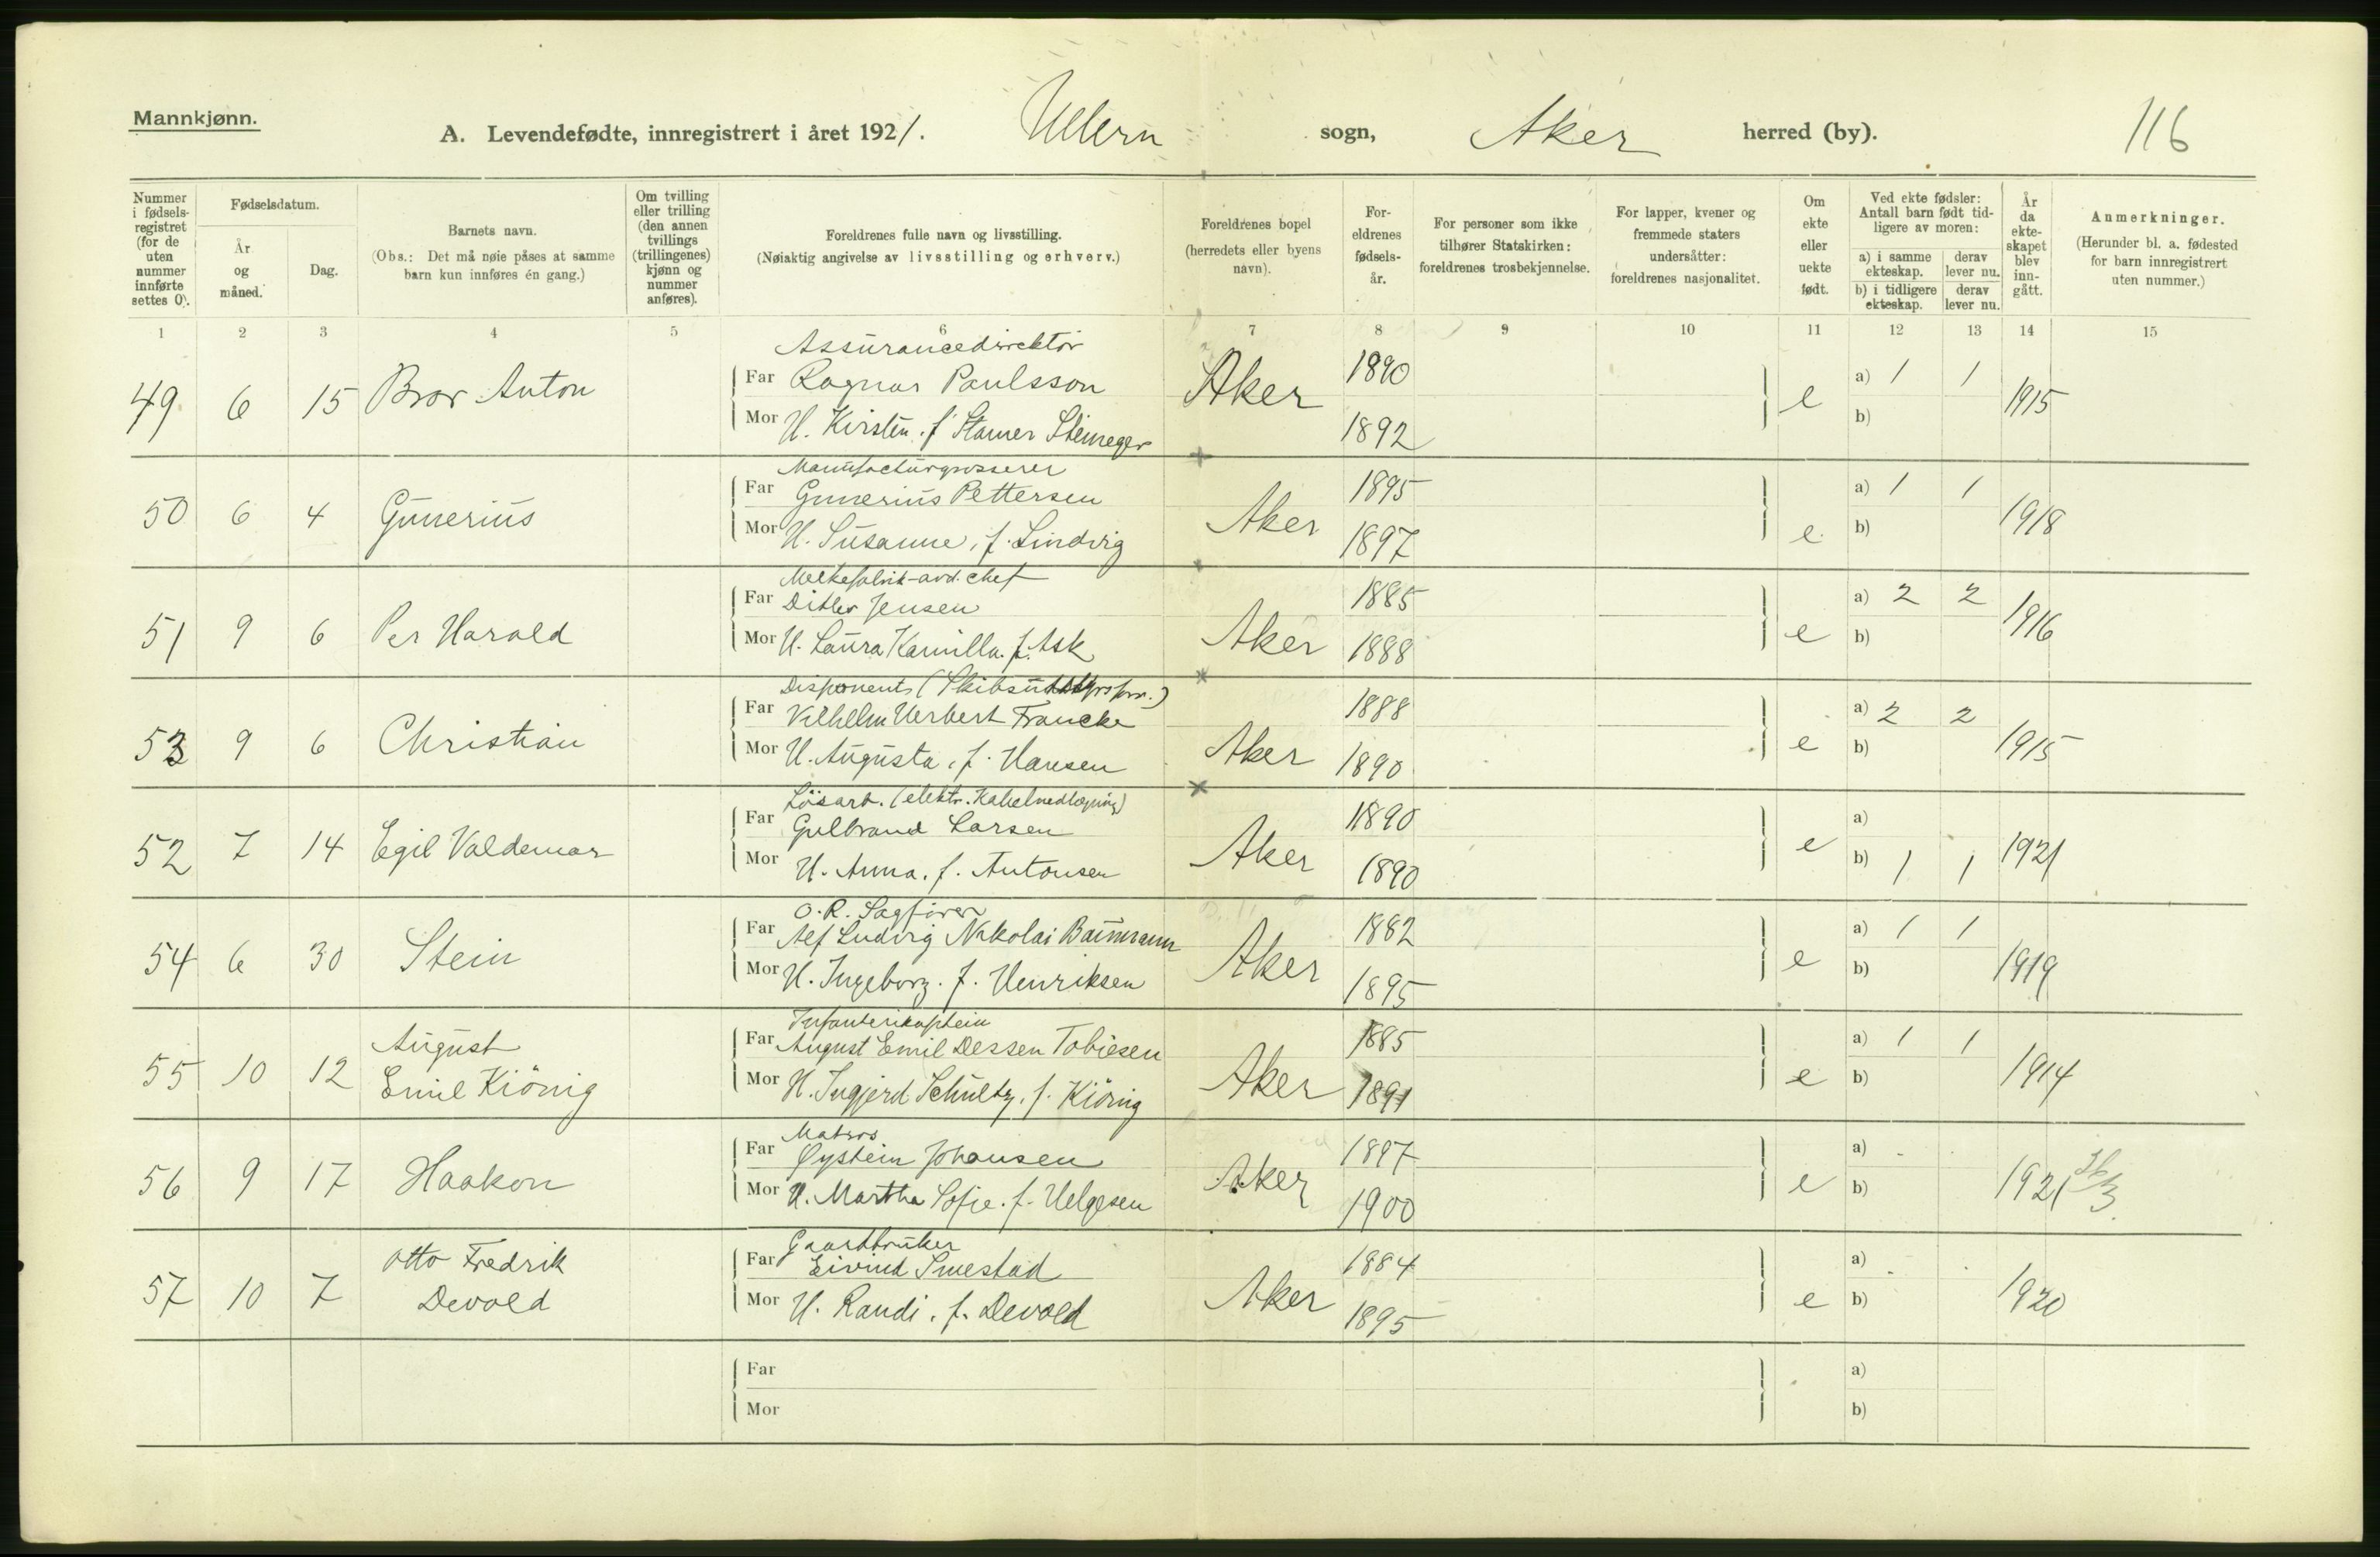 Mannkjønn.
A. Levendefødte, innregistrert i året 1921. Ullern sogn, Aker herred (by). 116
Nummer i fødsels-registret (for de uten nummer innførte settes 0).
Fødselsdatum.
År og måned.
Dag.
Barnets navn.
(Obs.: Det må nøie påses at samme barn kun innføres én gang.)
Om tvilling eller trilling (den annen tvillings (trillingenes) kjønn og nummer anføres).
Foreldrenes fulle navn og livsstilling.
(Nøiaktig angivelse av livsstilling og erhverv.)
Foreldrenes bopel (herredets eller byens navn).
For-eldrenes fødsels-år.
For personer som ikke tilhører Statskirken: foreldrenes trosbekjennelse.
For lapper, kvener og fremmede staters undersåtter: foreldrenes nasjonalitet.
Om ekte eller uekte født.
Ved ekte fødsler: Antall barn født tid-ligere av moren:
a) i samme ekteskap. derav lever nu.
b) i tidligere ekteskap. derav lever nu.
År da ekte-skapet blev inn-gått.
Anmerkninger.
(Herunder bl. a. fødested for barn innregistrert uten nummer.)
1 2 3 4 5 6 7 8 9 10 11 12 13 14 15
Assurancedirektör
49 6 15 Bror Anton Far Ragnar Paulsson Aker 1890 e a) 1 1 1915
Mor H. Kirsten. f. Stamer Steineger 1892 b)
Manufacturgrosserer
50 6 4 Gunerius Far Gunerius Pettersen Aker 1895 e. a) 1 1 1918
Mor H. Susanne, f. Lindvig 1897 b)
Melkefabrik-avd. chef
51 9 6 Per Harald Far Ditlev Jensen Aker 1885 e a) 2 2 1916
Mor H. Laura Kamilla. f. Ask 1888 b)
Disponent
53 9 6 Christian Far Vilhelm Herbert Francke Aker 1888 e a) 2 2 1915
Mor H. Augusta, f. Hansen 1890 b)
Lösarb. (elektr. Kabelnedlægning)
52 7 14 Egil Valdemar Far Gulbrand Larsen Aker 1890 e a) 1921
Mor H. Anna. f. Antonsen 1890 b) 1 1
O. R. Sagförer
54 6 30 Stein Far Alf Ludvig Nikolai Baumann Aker 1882 e a) 1 1 1919
Mor H. Ingeborg. f. Henriksen 1895 b)
Infanterikaptein
55 10 12 August Emil Kiönig Far August Emil Dessen Tobiesen Aker 1885 e a) 1 1 1914
Mor H. Ingjerd Schultz, f. Kiönig 1891 b)
Matros
56 9 17 Haakon Far Øystein Johansen Aker 1897 e a) - . 1921
Mor H. Martha Sofie. f. Helgesen 1900 b)
Gaardbruker
57 10 7 Otto Fredrik Devold Far Eivind Smestad Aker 1884 e a) . . 1920
Mor H. Randi. f. Devold 1895 b)
Far a)
Mor b)